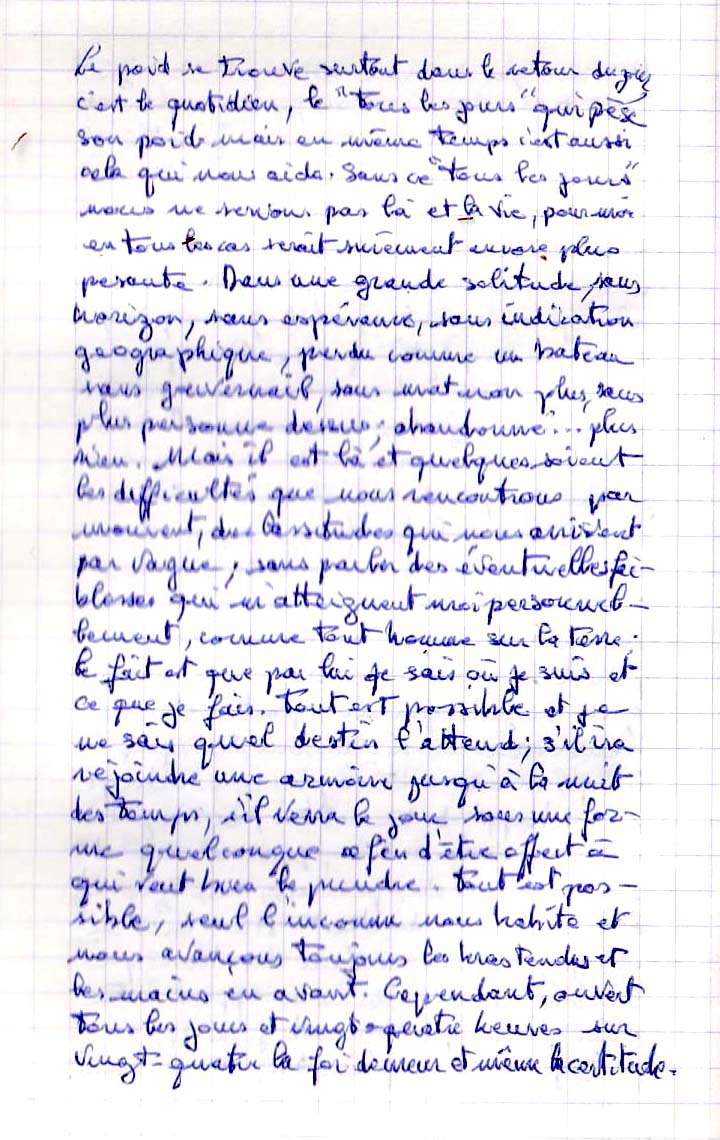 Le poid se trouve surtout dans le retour du
c'est le quotidien, le "tous les jours" qui pèse
son poid mais en même temps c'est aussi
cela qui nous aide. Sans ce "tous les jours"
nous ne serions pas là et la vie, pour moi
en tous les cas serait surement encore plus
pesante. Dans une grande solitude, sans
horizon, sans espérance, sans indication
géographique, perdu comme un bateau
sans gouvernail, sans mat non plus, sans
plus personne dessus; abandonné... plus
rien. Mais il est là et quelques soient
les difficultés que nous rencontrons par
moment, des lassitudes qui nous arrivent
par vague, sans parler des éventuelles fai-
blesses qui m'atteignent moi personnel-
lement, comme tout homme sur la terre.
le fait est que par lui je sais où je suis et
ce que je fais. tout est possible et je
ne sais quel destin l'attend; s'il ira
rejoindre une armoire jusqu'à la nuit
des temps, s'il verra le jour sous une for-
me quelconque afin d'être offert à
qui veut bien le prendre. tout est pos-
sible, seul l'inconnu nous habite et
nous avançons toujours les bras tendus et
les mains en avant. Cependant, ouvert
tous les jours et vingt-quatre heures sur
vingt-quatre la foi demeur et même la certitude.